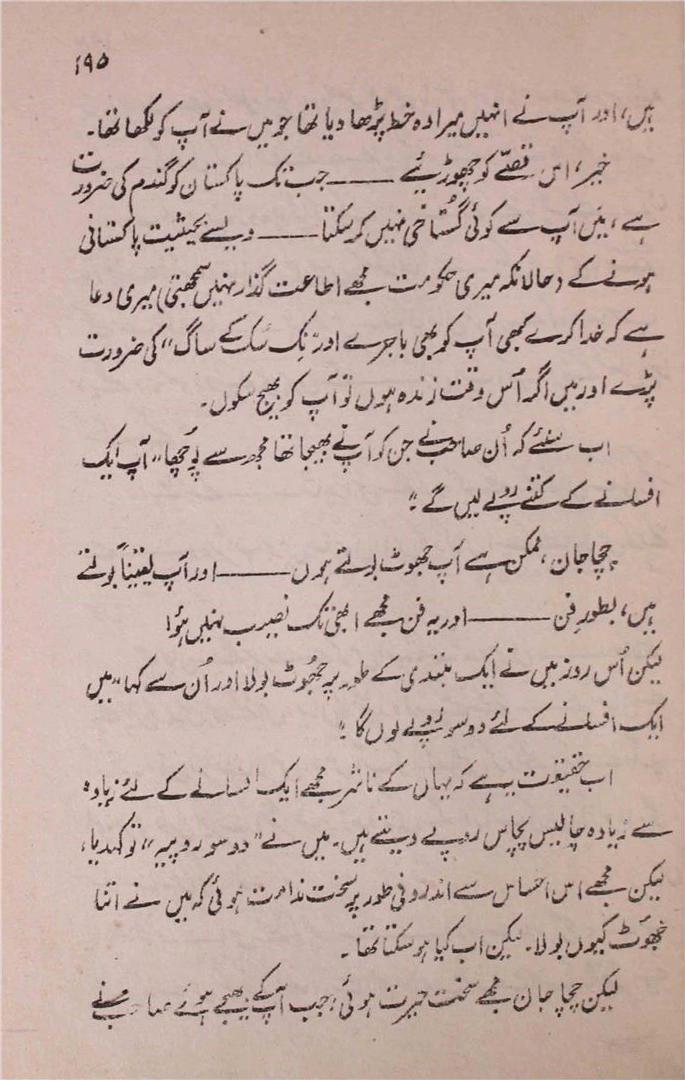 ۱۹۵
ہیں، اور آپ نے انہیں میرا وہ خط پڑھا دیا تھا جو میں نے آپ کو لکھا تھا۔
خیر، اس قصّے کو چھوڑئیے ——— جب تک پاکستان کو گندم کی ضرورت
ہے، میں آپ سے کوئی گستاخی نہیں کر سکتا ——— ویسے بحیثیت پاکستانی
ہونے کے (حالانکہ میری حکومت مجھے اطاعت گذار نہیں سمجھتی) میری دعا
ہے کہ خدا کرے کبھی آپ کو بھی باجرے اور ”نک سُک کے ساگ“ کی ضرورت
پڑے اور میں اگر اُس وقت زندہ ہوں تو آپ کو بھیج سکوں۔
اب سنئے کہ اُن صاحب نے جن کو آپ نے بھیجا تھا مجھ سے پوچھا ”آپ ایک
افسانے کے کتنے روپے لیں گے“
چچا جان، ممکن ہے آپ جھوٹ بولتے ہوں ——— اور آپ یقیناً بولتے
ہیں، بطور فن ——— اور یہ فن مجھے ابھی تک نصیب نہیں ہؤا
لیکن اُس روز میں نے ایک مبتدی کے طور پر جھُوٹ بولا اور اُن سے کہا ”میں
ایک افسانے کے لئے دو سو روپے لوں گا“
اب حقیقت یہ ہے کہ یہاں کے ناشر مجھے ایک افسانے کے لئے زیادہ
سے زیادہ چالیس پچاس روپے دیتے ہیں۔ میں نے ”دو سو روپیہ“ تو کہہ دیا،
لیکن مجھے اس احساس سے اندرونی طور پر سخت ندامت ہوئی کہ میں نے اتنا
جھوٹ کیوں بولا۔ لیکن اب کیا ہو سکتا تھا۔
لیکن چچا جان مجھے سخت حیرت ہوئی، جب آپ کے بھیجے ہوئے صاحب نے